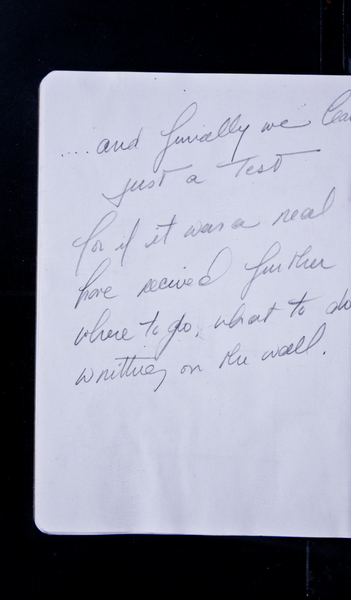 ....and finally we lea
just a Test
for if it was a real
have recived further
where to go, what to do
writting on the wall.